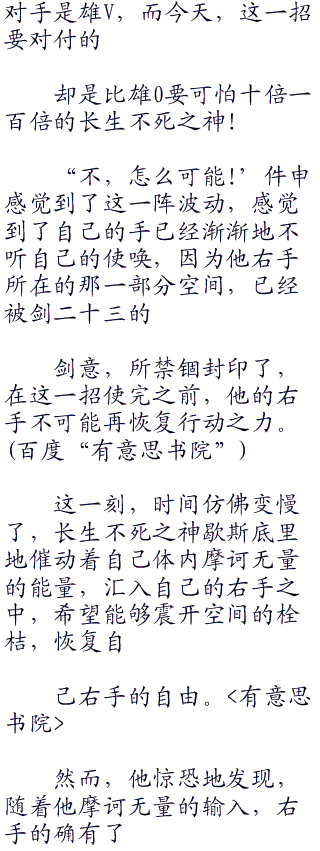 对手是雄V，而今天，这一招
要对付的
却是比雄0要可怕十倍一
百倍的长生不死之神！
“不，怎么可能！’件申
感觉到了这一阵波动，感觉
到了自己的手已经渐渐地不
听自己的使唤，因为他右手
所在的那一部分空间，已经
被剑二十三的
剑意，所禁锢封印了，
在这一招使完之前，他的右
手不可能再恢复行动之力。
(百度“有意思书院”)
这一刻，时间仿佛变慢
了，长生不死之神歇斯底里
地催动着自己体内摩诃无量
的能量，汇入自己的右手之
中，希望能够震开空间的栓
桔，恢复自
己右手的自由。<有意思
书院>
然而，他惊恐地发现，
随着他摩诃无量的输入，右
手的确有了